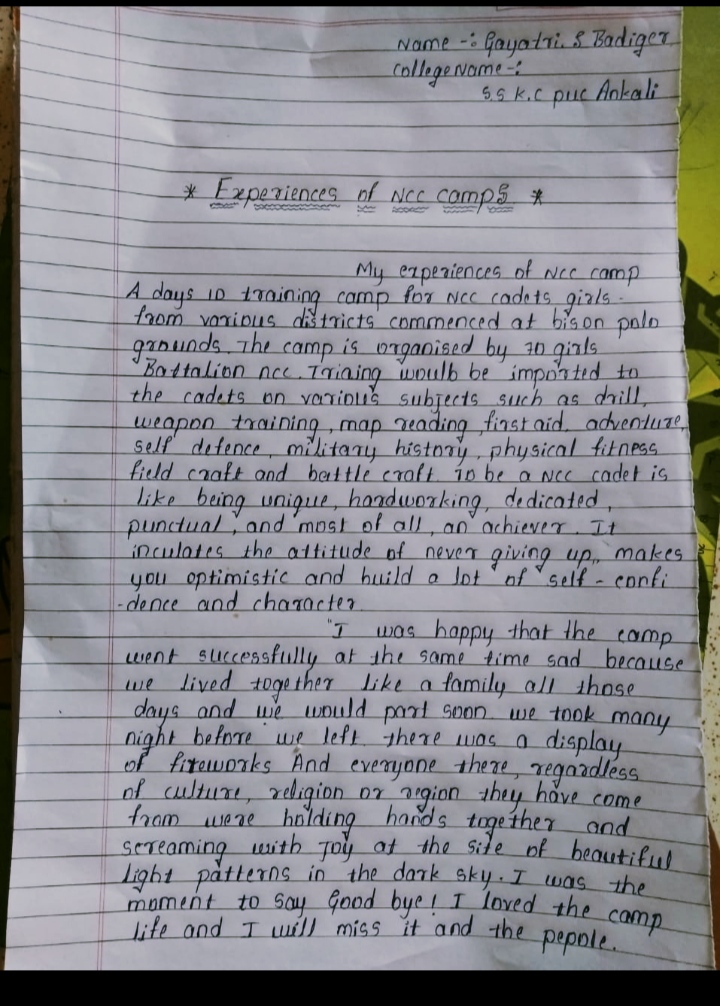 Name -: Gayatri. S Badiger
College Name -:
S.S K.C puc Ankali
* Experiences of NCC camps *
My experiences of NCC camp
A days 10 training camp for NCC cadets girls.
from various districts commenced at bison polo
grounds. The camp is organised by 70 girls
Battalion ncc. Triaing woulb be imparted to
the cadets on various subjects such as drill,
weapon training, map reading, first aid, adventure,
self defence, military history, physical fitness
field craft and battle craft. To be a NCC cadet is
like being unique, hardworking, dedicated,
punctual, and most of all, an achiever. It
inculates the attitude of never giving up,, makes
you optimistic and build a lot of self - confi
-dence and character.
"I was happy that the camp
went successfully at the same time sad because
we lived together like a family all those
days and we would part soon. we took many
night before we left. there was a display
of fireworks And everyone there, regardless
of culture, religion or region they have come
from were holding hands together and
screaming with Joy at the site of beautiful
light patterns in the dark sky. I was the
moment to say Good bye! I loved the camp
life and I will miss it and the pepole.